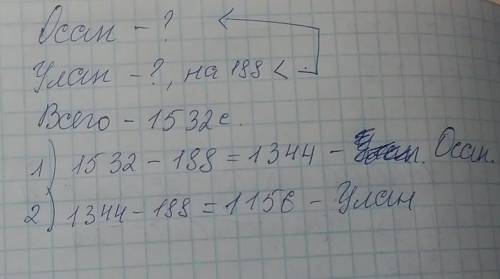 Осан - ?
Улан - ?, на 188 <
Всего - 1532 с.
1) 1532 - 188 = 1344 - Осан.
2) 1344 - 188 = 1156 - Улан